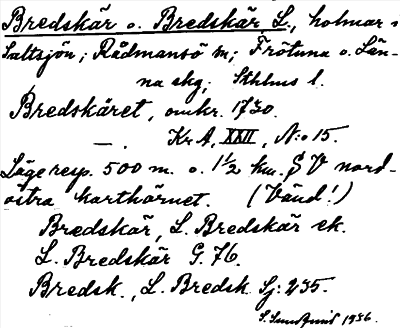 Bredskär o. Bredskär L., holmar i
Saltsjön; Rådmansö sn; Frötuna o. Län-
na skg; Sthlms l.
Bredskäret, omkr. 1730.
— . Kr A, XXII, N:o 15.
Läge resp. 500 m. o. 1 1/2 km. SV nord-
östra karthörnet. (Vänd!)
Bredskär, L. Bredskär ek.
L. Bredskär G. 76.
Bredsk., L. Bredsk Sj: 235.
1936.